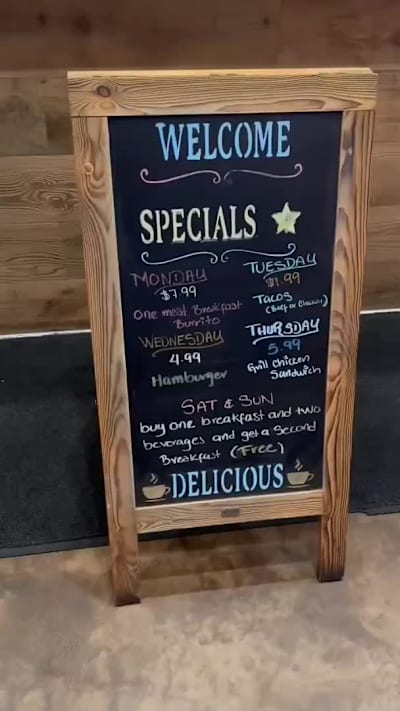 WELCOME
SPECIALS
MONDAY
$7.99
One meat Breakfast
Burrito
TUESDAY
$1.99
Tacos
(Beef or Chicken)
WEDNESDAY
4.99
Hamburger
THURSDAY
5.99
Grill Chicken
Sandwich
SAT & SUN
buy one breakfast and two
beverages and get a Second
Breakfast (Free)
DELICIOUS